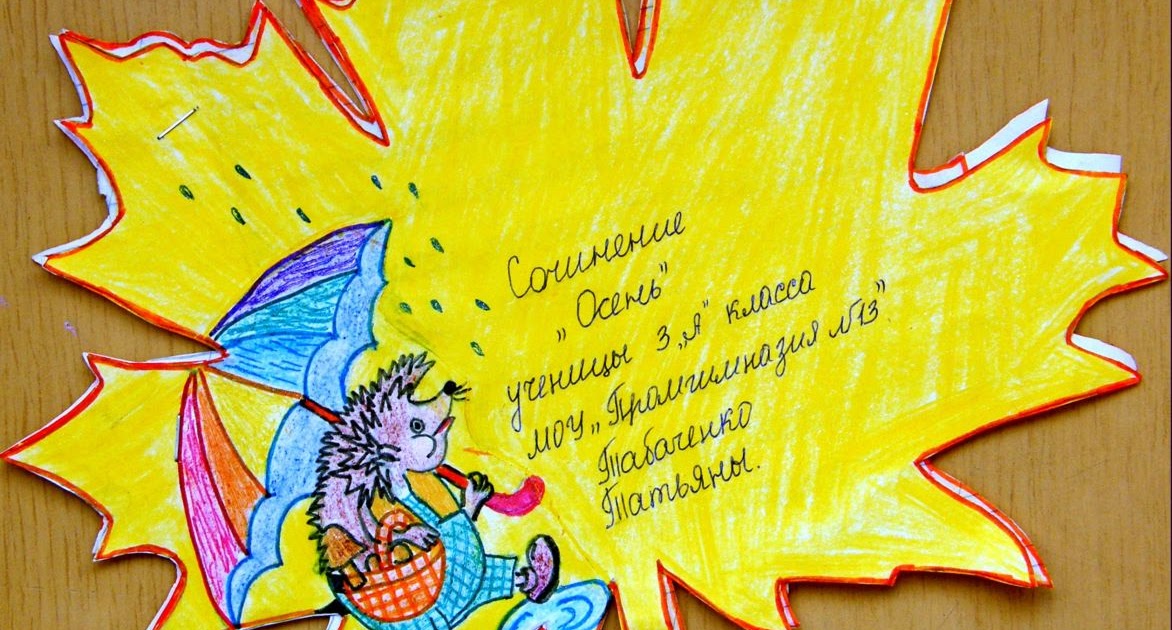 Сочинение
„Осень"
ученицы 3„А" класса
МОУ„Промгимназия №13".
Табаченко
Татьяны.